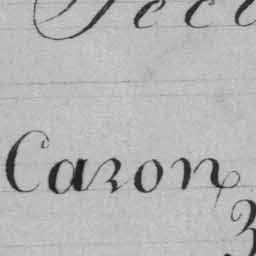 Caron
3